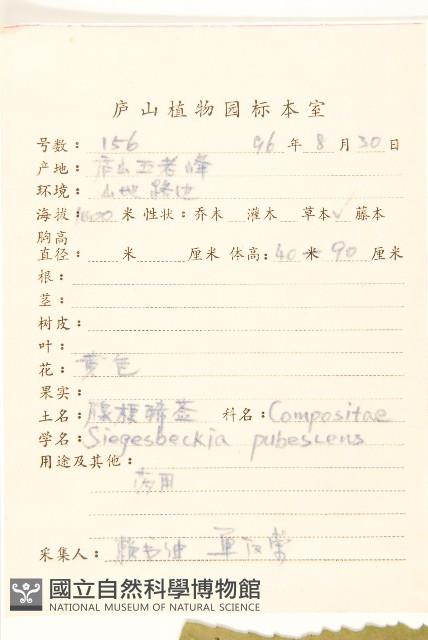 庐山植物园标本室
号数：156 96年8月30日
产地：庐山五老峰
环境：山地路边
海拔：1400米 性状：乔木 灌木 草本✓ 藤本
胸高
直径： 米 厘米 体高：40米90厘米
根：
茎：
树皮：
叶：
花：黄色
果实：
土名：腺梗豨莶 科名：Compositae
学名：Siegesbeckia pubescens
用途及其他：
药用
采集人：
國立自然科學博物館
NATIONAL MUSEUM OF NATURAL SCIENCE